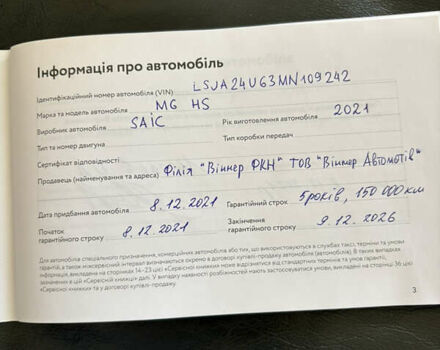 Інформація про автомобіль
Ідентифікаційний номер автомобіля (VIN) LSJA24U63MN109242
Марка та модель автомобіля MG HS
Виробник автомобіля SAIC Рік виготовлення автомобіля 2021
Тип та номер двигуна Тип коробки передач
Сертифікат відповідності
Продавець (найменування та адреса) Філія "Віннер ФКН" ТОВ "Віннер Автомотів"
Дата придбання автомобіля 8.12.2021 Гарантійний строк 5 років, 150 000 км
Початок гарантійного строку 8.12.2021 Закінчення гарантійного строку 9.12.2026
Для автомобіля спеціального призначення, комерційних автомобілів або тих, що використовуються в службах таксі, терміни та умови
гарантії, а також міжсервісний інтервал визначаються окремо в договорі купівлі-продажу автомобіля (автомобілів). В таких випадках
інформація, викладена на сторінках 14–23 цієї «Сервісної книжки» може відрізнятися від стандартних термінів та умов гарантії,
зазначених в цій «Сервісній книжці» далі. У випадку наявності розбіжностей мають застосовуватися умови, викладені на сторінці 36 цієї
«Сервісної книжки» та у договорі купівлі-продажу.
3